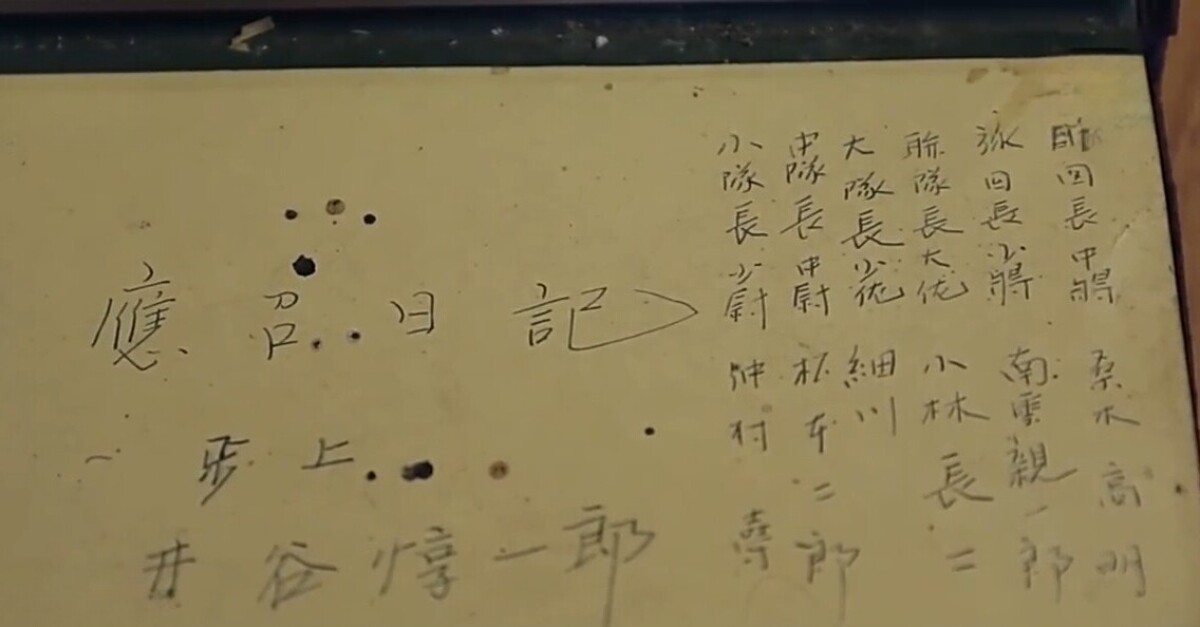 應召日記
一歩上
井谷惇一郎
師団長中将 桑木高明
旅団長少将 南雲親一郎
聯隊長大佐 小林長二
大隊長少佐 細川
中隊長中尉 松本二郎
小隊長少尉 仲村